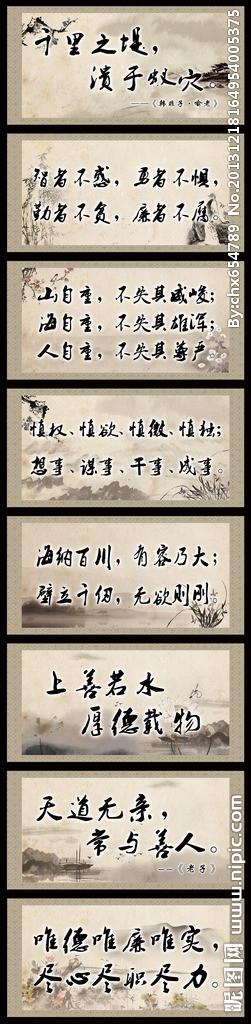 千里之堤，
溃于蚁穴。
——《韩非子·喻老》
智者不惑，勇者不惧，
勤者不贪，廉者不腐。
山自重，不失其威峻；
海自重，不失其雄浑；
人自重，不失其尊严。
慎权、慎欲、慎微、慎独；
想事、谋事、干事、成事。
海纳百川，有容乃大；
壁立千仞，无欲则刚。
上善若水
厚德载物
天道无亲，
常与善人。
——《老子》
唯德唯廉唯实，
尽心尽职尽力。
By:chx654789 No.20131218164954005375
昵图网 www.nipic.com